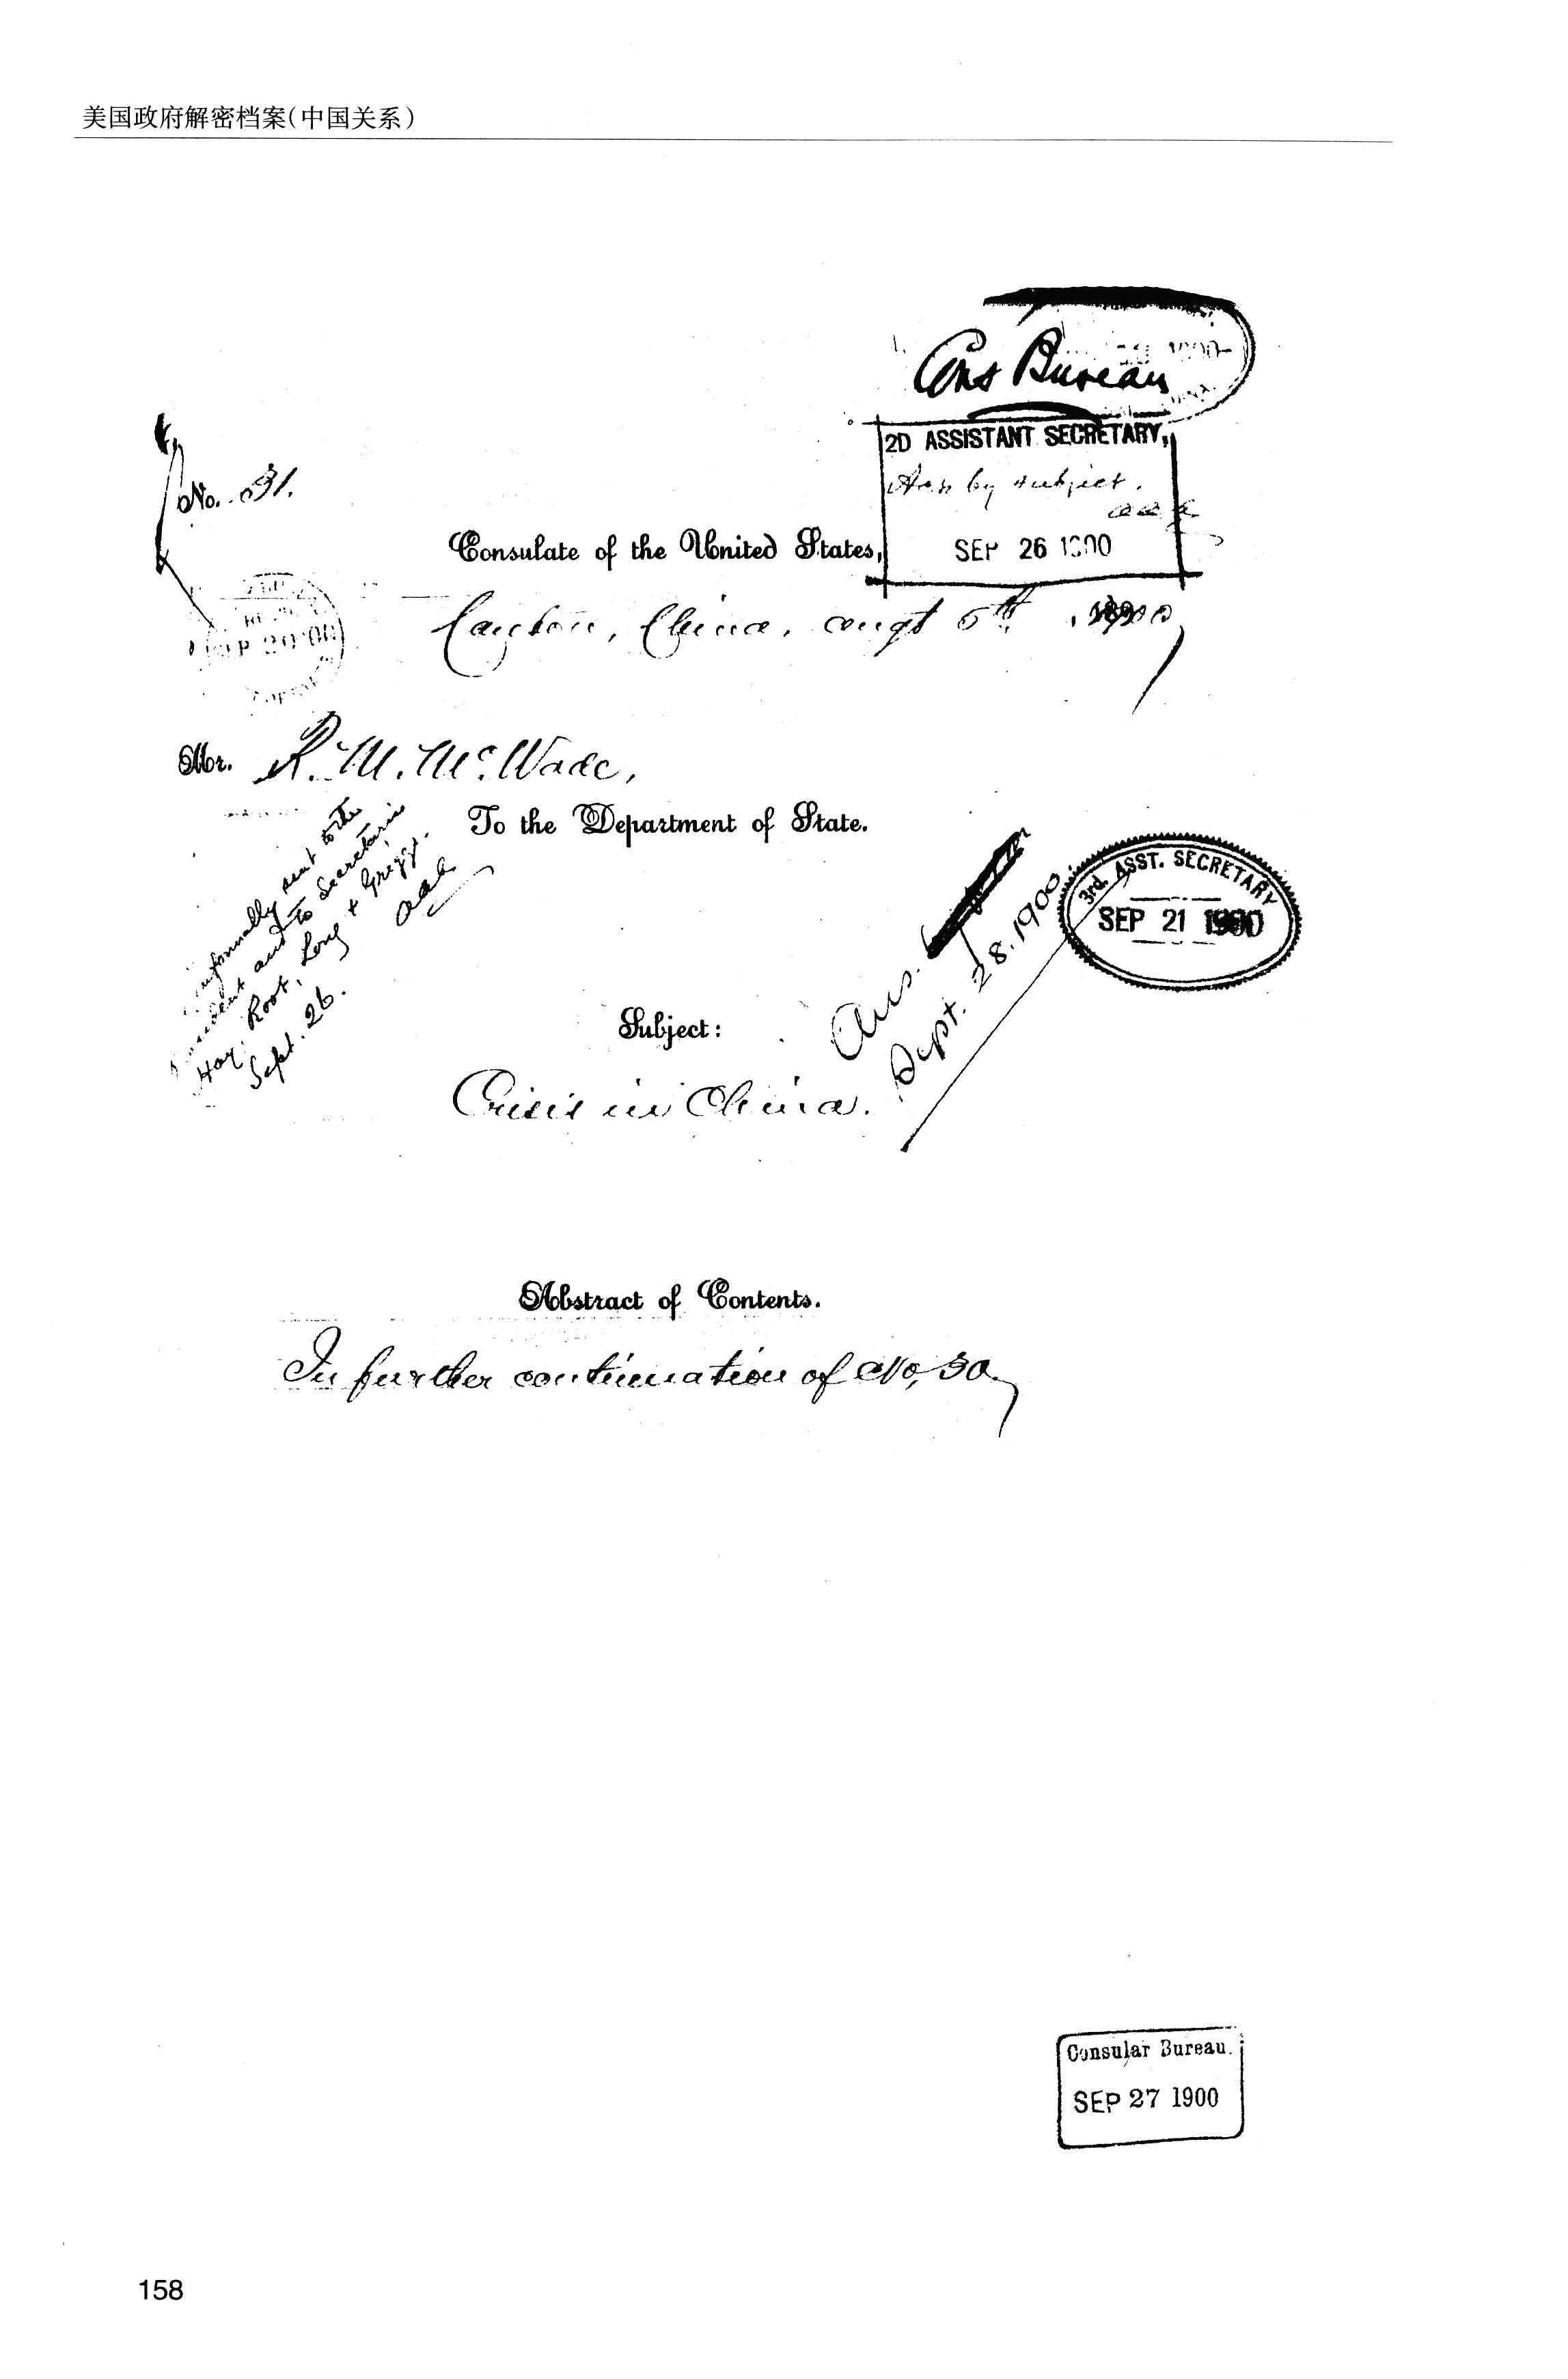 美国政府解密档案(中国关系)
Cons Bureau
2D ASSISTANT SECRETARY,
Ans by subject.
aaa
SEP 26 1900
No. 31.
Consulate of the United States,
Canton, China, augt 6th, 1900
SEP 20 00
Mr. R. M. McWade,
To the Department of State.
Informally sent to the
President and to Secretaries
Hay, Root, Long & Griggs.
Sept. 26. aaa
3rd. ASST. SECRETARY
SEP 21 1900
Ans.
Sept. 28. 1900
Subject:
Crisis in China.
Abstract of Contents.
In further continuation of No, 30.
Consular Bureau.
SEP 27 1900
158